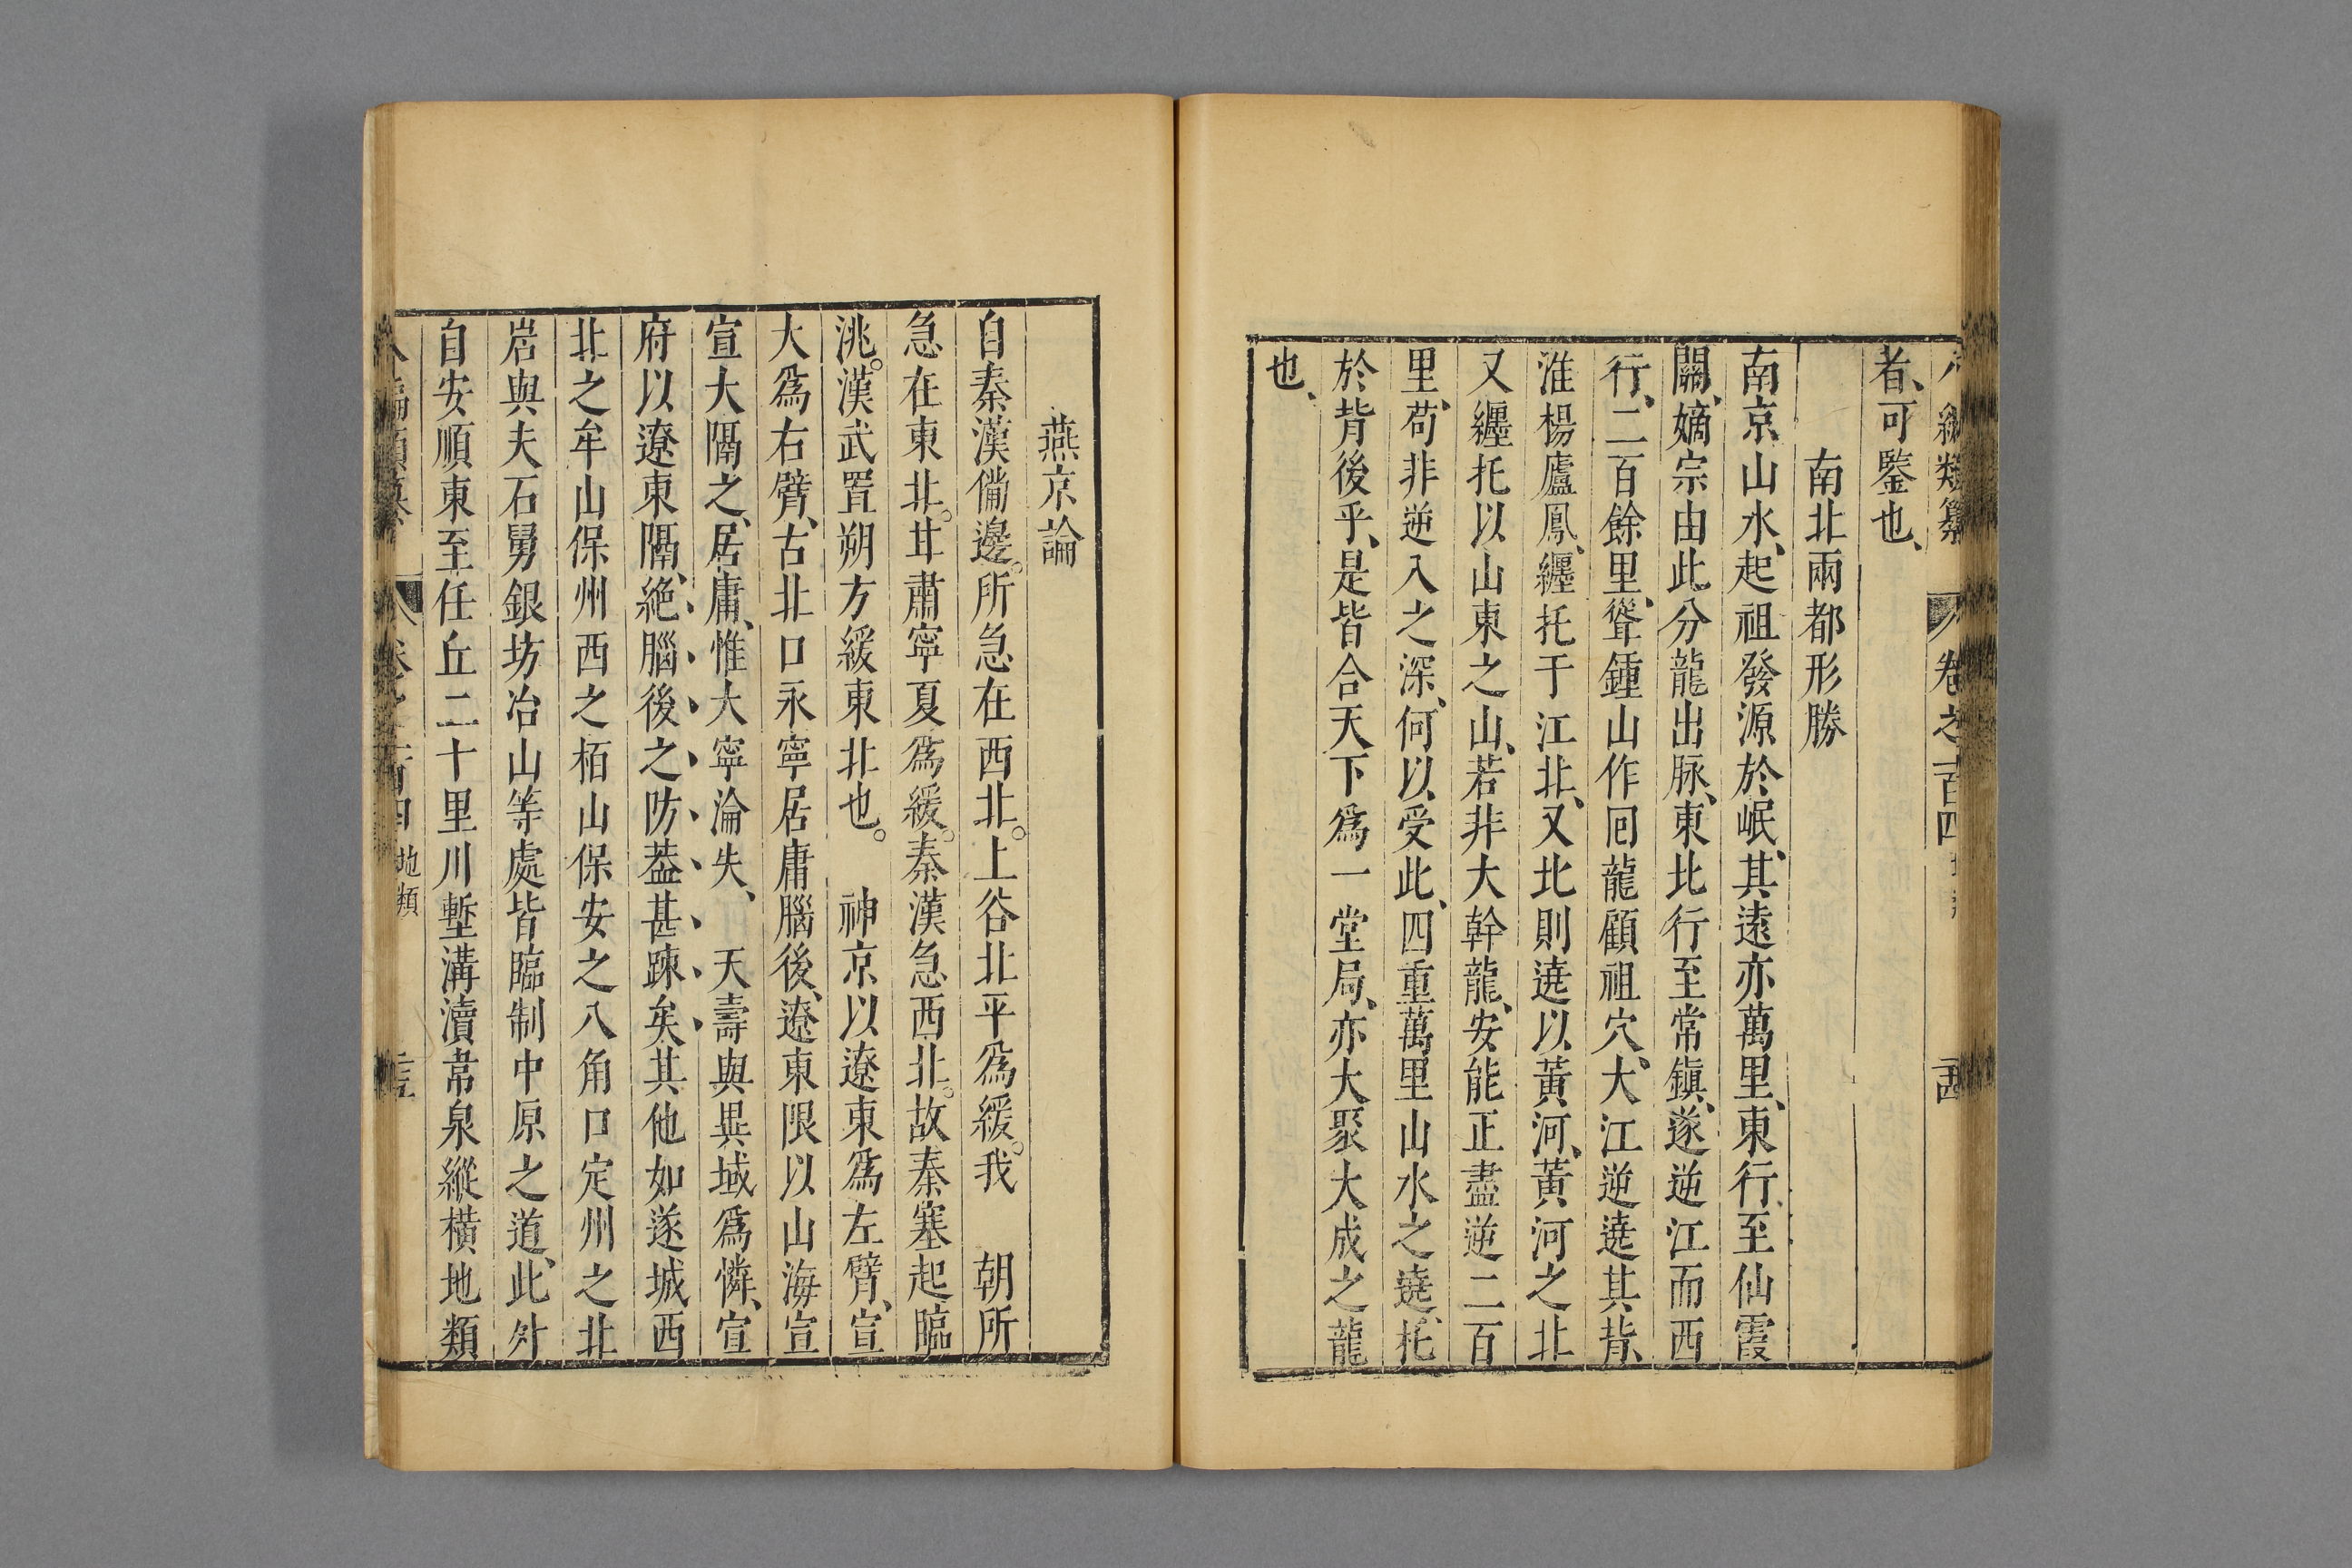 編類纂 卷之一百四
者、可鑒也、
南北兩都形勝
南京山水、起祖發源於岷、其遠亦萬里、東行、至仙霞
關、嫡宗由此分龍出脉、東北行至常鎭、遂逆江而西
行、二百餘里、聳鍾山作囘龍顧祖穴、大江逆遶其背、
淮楊廬鳳、纒托于江北、又北則遶以黃河、黃河之北
又纒托以山東之山、若非大幹龍、安能正盡逆二百
里、苟非逆入之深、何以受此、四重萬里山水之遶、托
於背後乎、是皆合天下爲一堂局、亦大聚大成之龍
也、
燕京論
自秦漢備邊。所急在西北。上谷北平爲緩。我 朝所
急在東北。甘肅寧夏爲緩。秦漢急西北。故秦塞起臨
洮。漢武置朔方緩東北也。 神京以遼東爲左臂、宣
大爲右臂、古北口永寧居庸腦後、遼東限以山海宣
宣大隔之、居庸、惟大寧淪失、 天壽與異域爲憐、宣
府以遼東隔、絶腦後之防葢甚踈矣、其他如遂城西
北之牟山保州西之栢山保安之八角口定州之北
岩與夫石舅銀坊冶山等處皆臨制中原之道、此外
自安順東至任丘二十里川塹溝瀆帯泉縱橫地類
編類纂 卷之一百四 地類